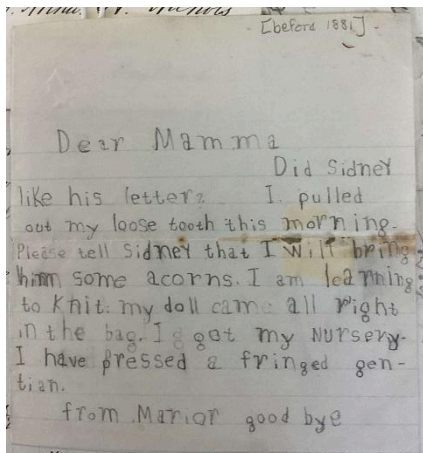 [before 1881]
Dear Mamma
Did Sidney
like his letter? I pulled
out my loose tooth this morning.
Please tell Sidney that I will bring
him some acorns. I am learning
to knit. my doll came all right
in the bag. I got my Nursery.
I have pressed a fringed gen-
tian.
from Marior good bye